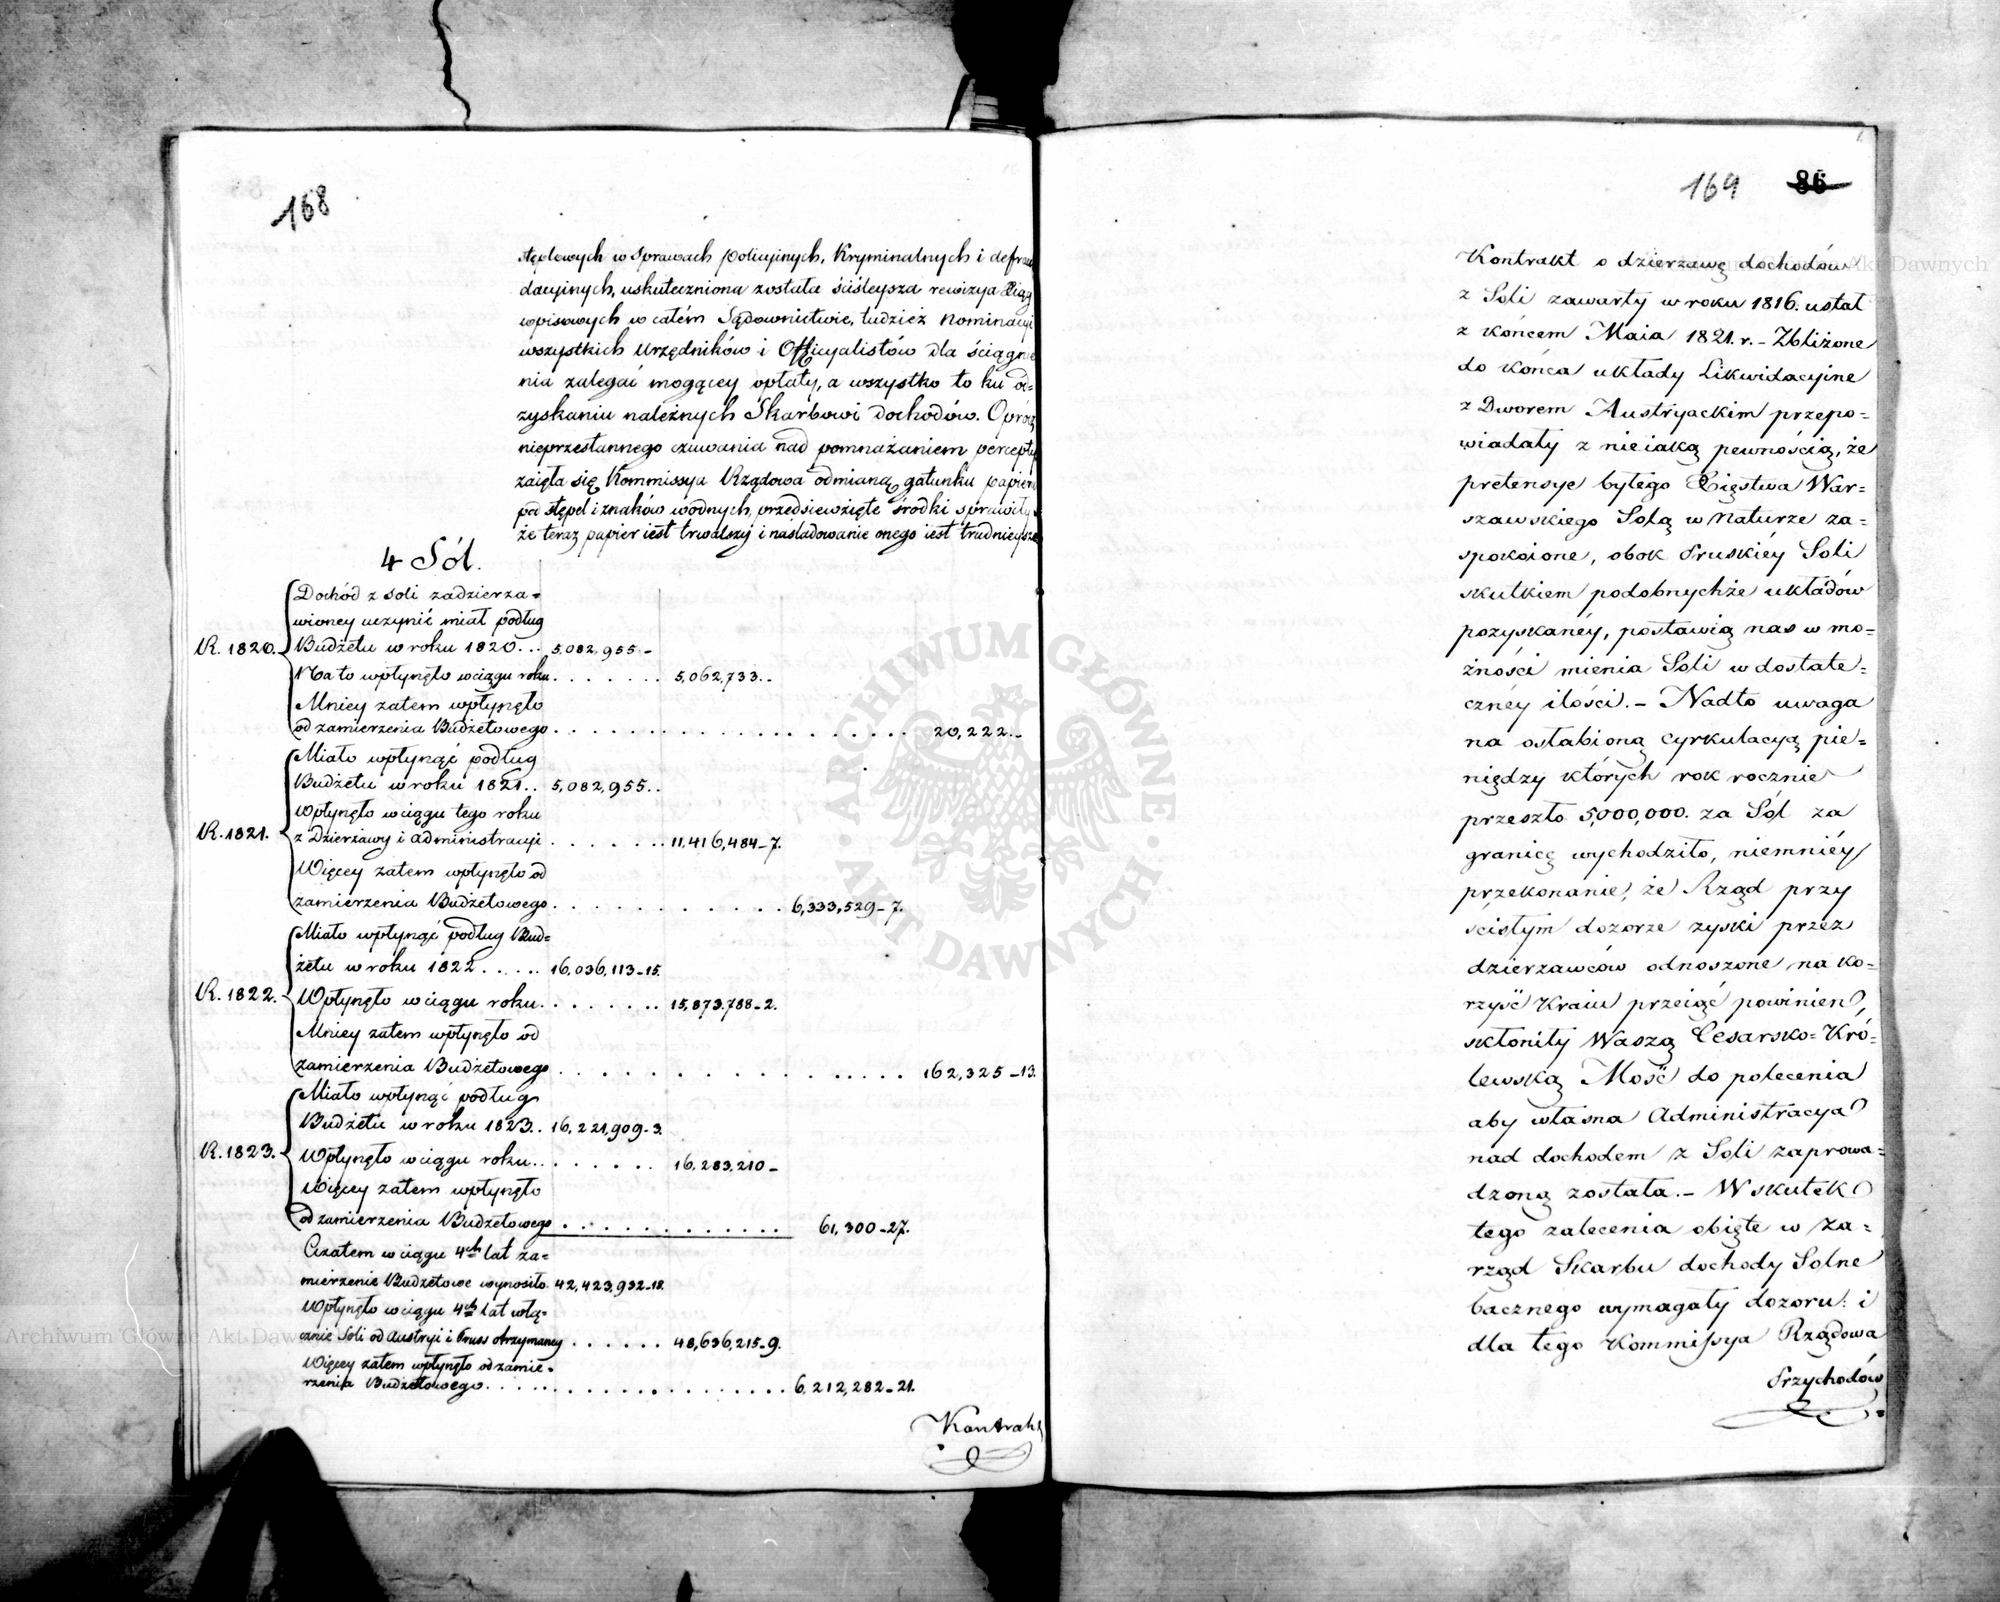 168
stęplowych w sprawach policyinych, kryminalnych i defrau
dacyinych, uskuteczniona została ściśleysza rewizya Xiąg
wpisowych w całém Sądownictwie, tudzież nominacyi
wszystkich Urzędników i Officyalistów dla ściągnie
nia zalegać mogącey opłaty, a wszystko to ku od=
zyskaniu należnych Skarbowi dochodów. Oprócz
nieprzestannego czuwania nad pomnażaniem percepty
zaięła się Kommissya Rządowa odmianą gatunku papieru
pod stępel i znaków wodnych, przedsięwzięte środki sprawiły
że teraz papier iest trwalszy i naśladowanie onego iest trudnieysze
4 Sól.
Dochód z soli zadzierza=
wioney uczynić miał podług
R. 1820. Budżetu w roku 1820... 5,082,955-
Na to wpłynęło w ciągu roku . . . . . . 5,062,733..
Mniey zatem wpłynęło
od zamierzenia Budżetowego . . . . . . . . . . . . . . 20,222.-
Miało wpłynąć podług
Budżetu w roku 1821.. 5,082,955..
Wpłynęło w ciągu tego roku
R. 1821. z Dzierżawy i administracyi . . . . . . . 11,416,484-7.
Więcey zatem wpłynęło od
zamierzenia Budżetowego . . . . . . . . . . . . 6,333,529-7.
Miało wpłynąć podług Bud=
żetu w roku 1822 . . . . . 16,036,113-15.
R. 1822. Wpłynęło w ciągu roku . . . . . . . 15,873,788-2.
Mniey zatem wpłynęło od
zamierzenia Budżetowego . . . . . . . . . . . . . . 162,325-13.
Miało wpłynąć podług
Budżetu w roku 1823.. 16,221,909-3.
R. 1823. Wpłynęło w ciągu roku.. . . . . . . 16,283,210-
Więcey zatem wpłynęło
od zamierzenia Budżetowego . . . . . . . . . . . . 61,300-27.
A zatem w ciągu 4ch lat za=
mierzenie Budżetowe wynosiło. 42,423,932-18.
Wpłynęło w ciągu 4ch lat włą=
cznie Soli od Austryi i Pruss otrzymaney . . . . . . 48,636,215-9.
Więcey zatem wpłynęło od zamie=
rzenia Budżetowego . . . . . . . . . . . . . . . . 6,212,282-21.
Kontrakt
169 86
Kontrakt o dzierzawę dochodów
z Soli zawarty w roku 1816. ustał
z końcem Maia 1821. r. - Zbliżone
do końca układy Likwidacyine
z Dworem Austryackim przepo=
wiadały z nieiaką pewnością, że
pretensye byłego Xięstwa War=
szawskiego Solą w naturze za=
spokoione, obok Pruskiéy Soli
skutkiem podobnychże układów
pozyskanéy, postawią nas w mo=
żności mienia Soli w dostate=
cznéy ilości. - Nadto uwaga
na osłabioną cyrkulacyą pie=
niędzy których rok rocznie
przeszło 5,000,000. za Sól za
granicę wychodziło, niemniéy
przekonanie, że Rząd przy
ścisłym dozorze zyski przez
dzierzawców odnoszone na ko=
rzyść Kraiu przeiąć powinien,
skłoniły Waszą Cesarsko=Kró=
lewską Mość do polecenia
aby własna Administracya
nad dochodem z Soli zaprowa=
dzoną została. - W skutek
tego zalecenia obięte w za=
rząd Skarbu dochody Solne
bacznego wymagały dozoru: i
dla tego Kommissya Rządowa
Przychodów
ARCHIWUM GŁÓWNE AKT DAWNYCH
Archiwum Główne Akt Dawnych
Archiwum Główne Akt Dawnych